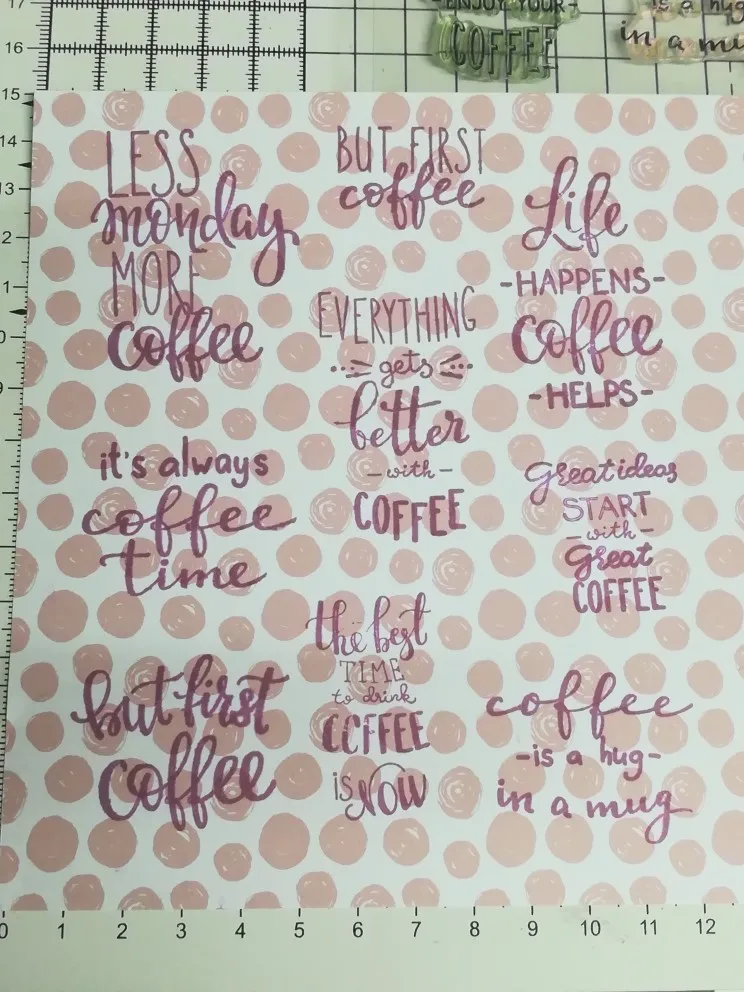 ENJOY YOUR
COFFEE
is a hug
in a mu
LESS
monday
MORE
coffee
BUT FIRST
coffee
Life
-HAPPENS-
coffee
-HELPS-
EVERYTHING
gets
better
-with-
COFFEE
it's always
coffee
time
Great ideas
START
-with-
Great
COFFEE
the best
TIME
to drink
COFFEE
is NOW
but first
coffee
coffee
-is a hug-
in a mug
17
16
15
14
13
2
1
0
9
0 1 2 3 4 5 6 7 8 9 10 11 12